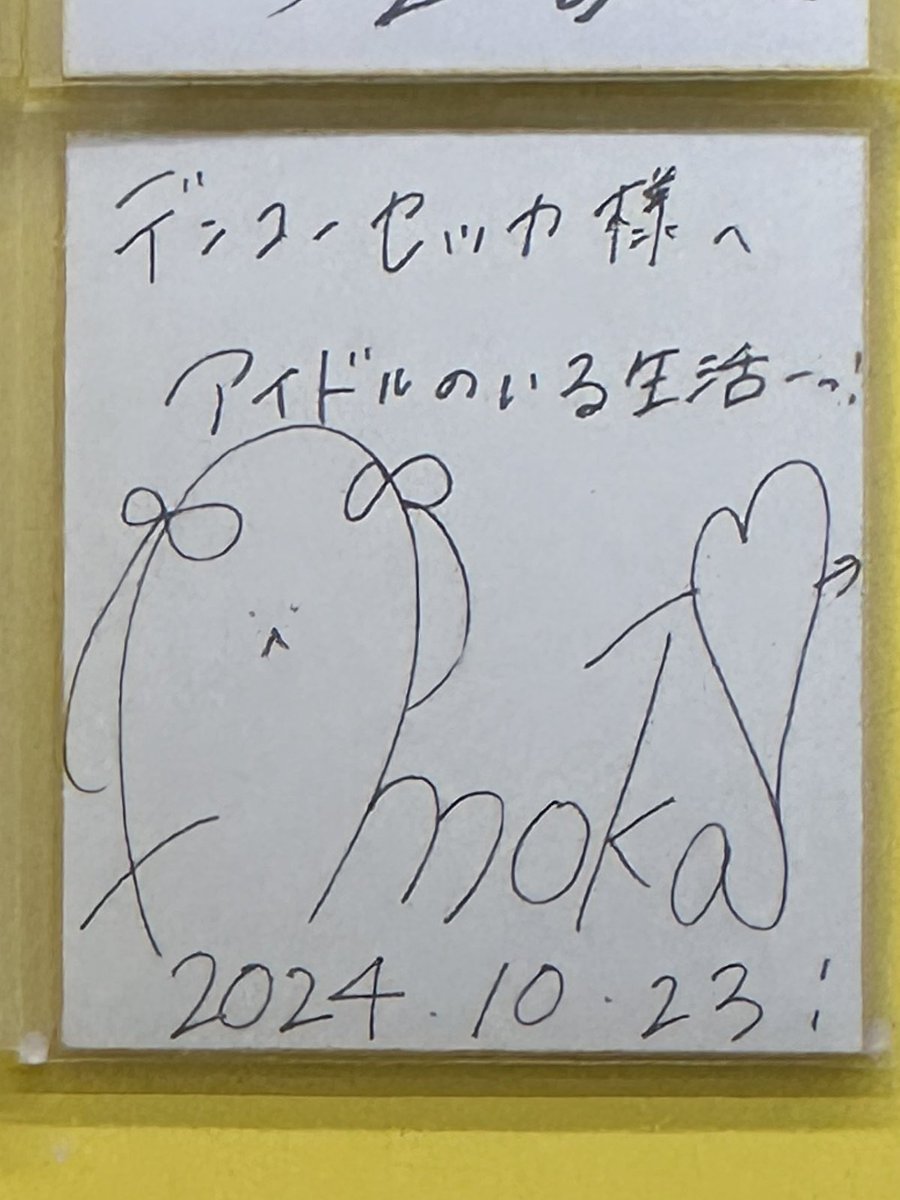 デンコーセッカ様へ
アイドルのいる生活ーっ!
moka
2024.10.23!